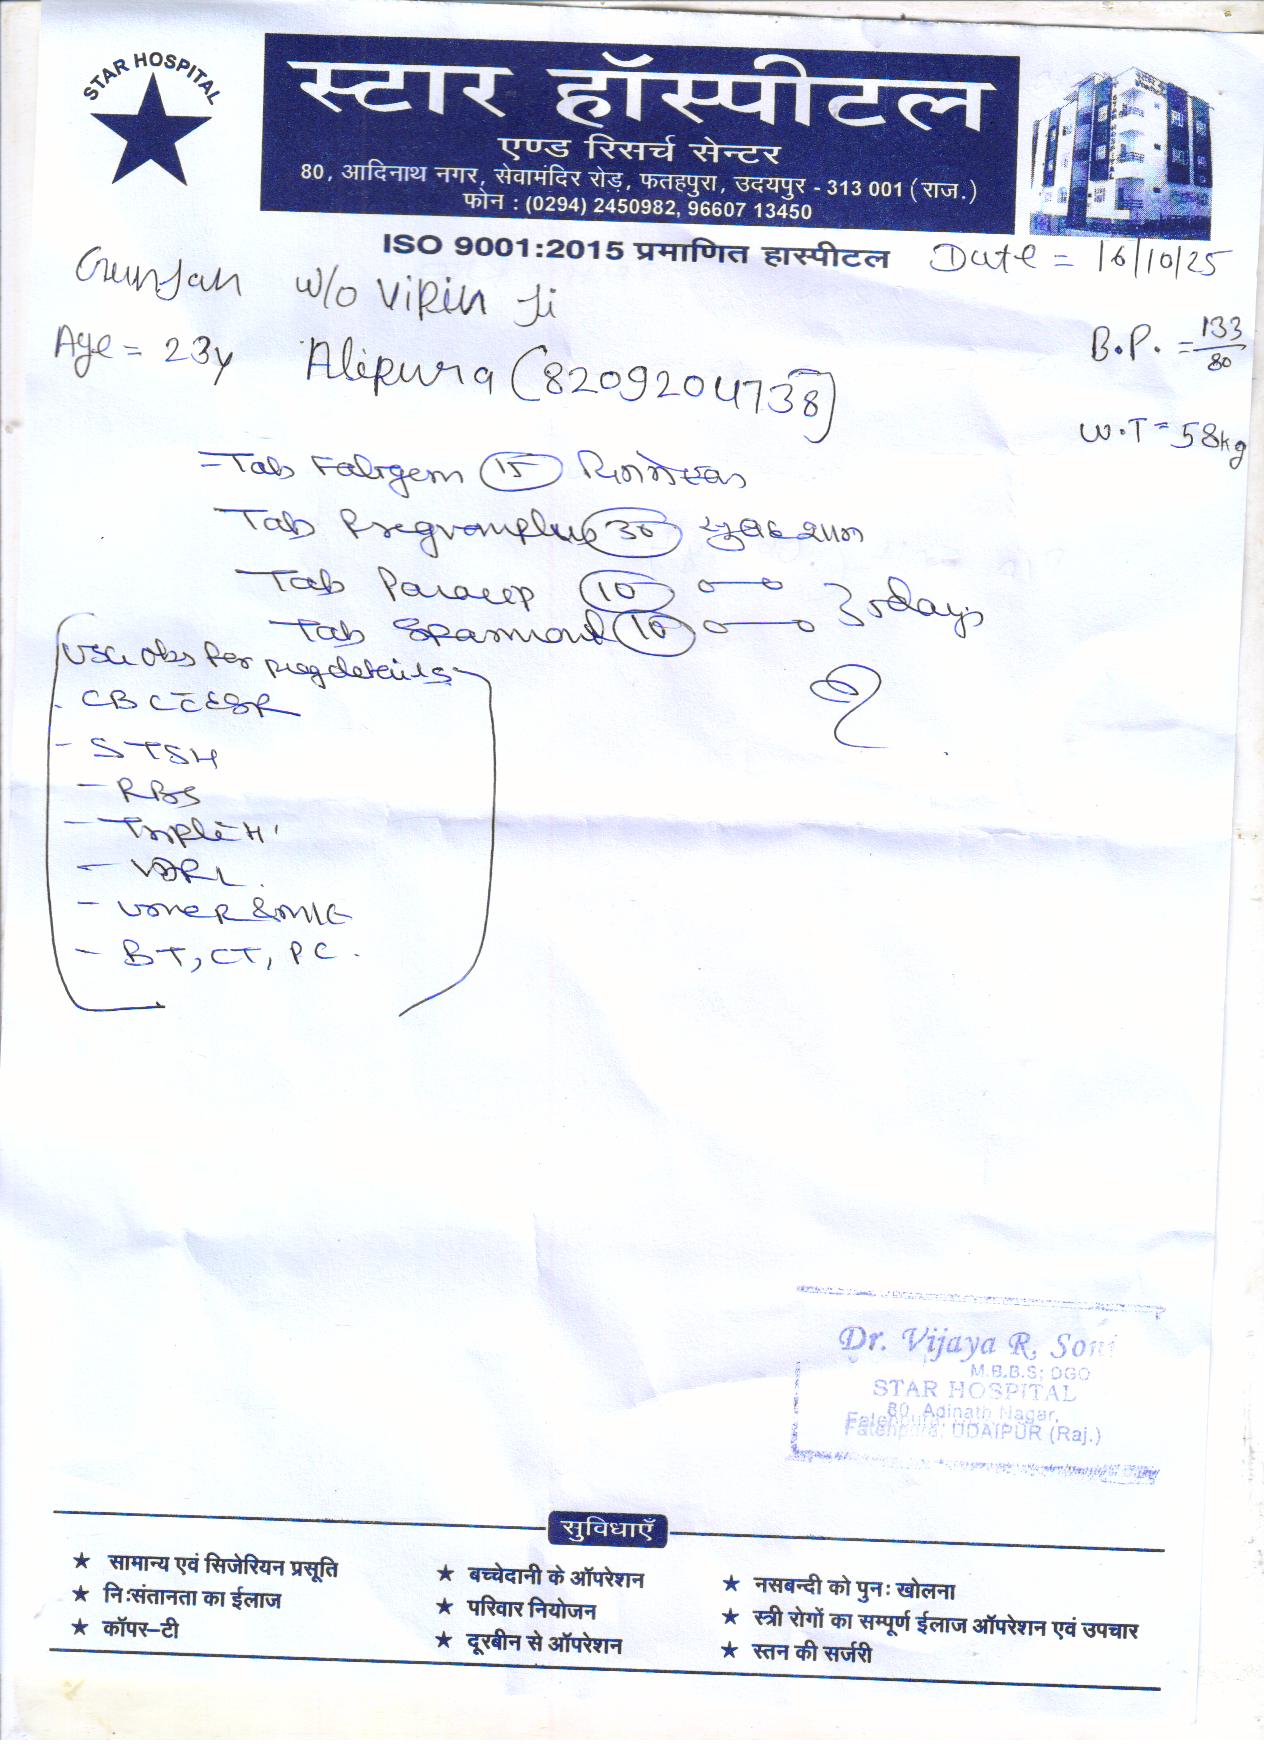 STAR HOSPITAL
स्टार हॉस्पीटल
एण्ड रिसर्च सेन्टर
80, आदिनाथ नगर, सेवामंदिर रोड़, फतहपुरा, उदयपुर - 313 001 (राज.)
फोन : (0294) 2450982, 96607 13450
ISO 9001:2015 प्रमाणित हास्पीटल
Date = 16/10/25
Gunjan w/o Vipin Ji
Age = 23y Alipura (8209204738)
B.P. = 133/80
W.T = 58kg
Tab Foligem 15
Tab 30 सुबह शाम
Tab Paracip 10 3 days
Tab 10
USG obs for preg details
CBC ESR
- STSH
- RBS
- Triple H
- VDRL.
- Urine R & M/E
- BT, CT, PC.
Dr. Vijaya R. Soni
M.B.B.S; DGO
STAR HOSPITAL
80, Adinath Nagar,
Fatehpura, UDAIPUR (Raj.)
सुविधाएँ
★ सामान्य एवं सिजेरियन प्रसूति ★ बच्चेदानी के ऑपरेशन ★ नसबन्दी को पुनः खोलना
★ निःसंतानता का ईलाज ★ परिवार नियोजन ★ स्त्री रोगों का सम्पूर्ण ईलाज ऑपरेशन एवं उपचार
★ कॉपर-टी ★ दूरबीन से ऑपरेशन ★ स्तन की सर्जरी